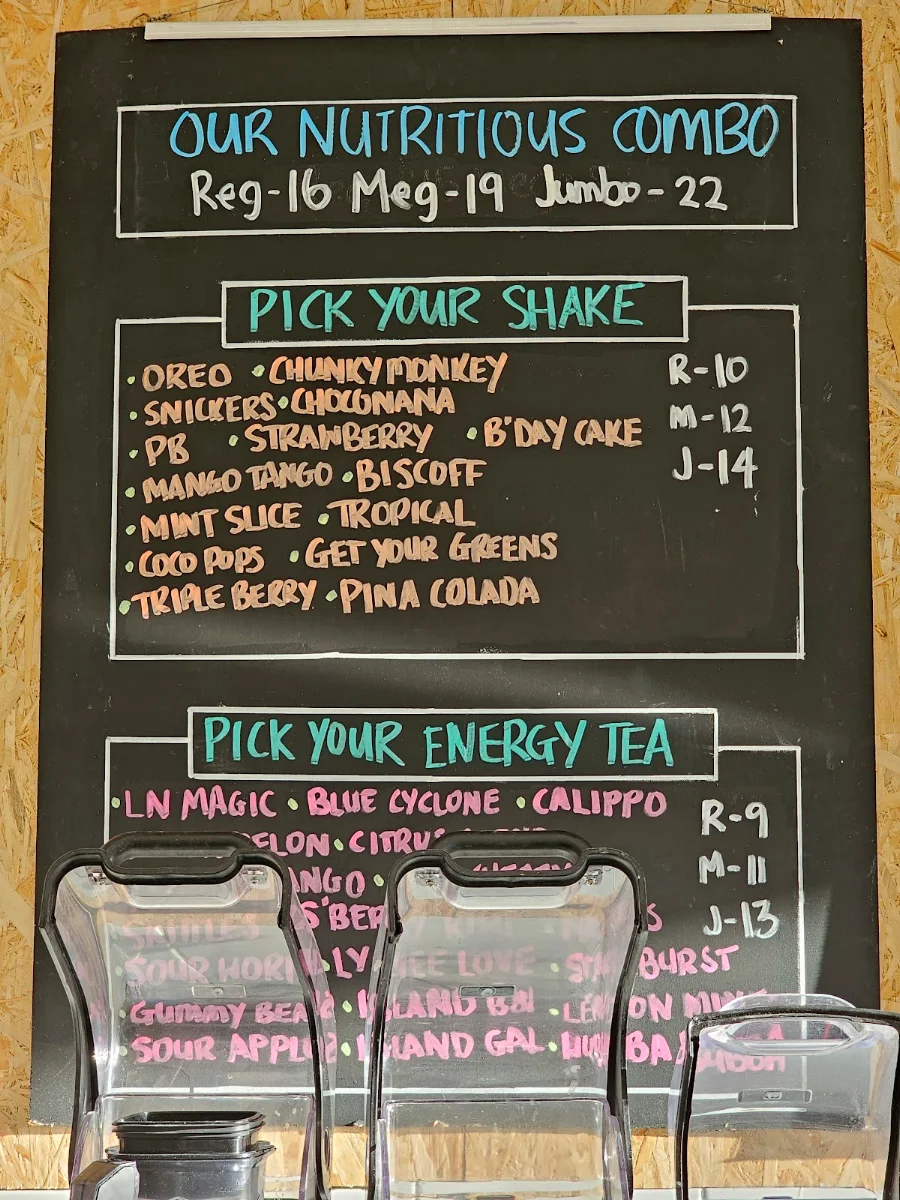 OUR NUTRITIOUS COMBO
Reg-16 Meg-19 Jumbo-22
PICK YOUR SHAKE
• OREO • CHUNKY MONKEY R-10
• SNICKERS • CHOCONANA M-12
• PB • STRAWBERRY • B'DAY CAKE
• MANGO TANGO • BISCOFF J-14
• MINT SLICE • TROPICAL
• COCO POPS • GET YOUR GREENS
• TRIPLE BERRY • PINA COLADA
PICK YOUR ENERGY TEA
• LN MAGIC • BLUE CYCLONE • CALIPPO R-9
• CITRUS
M-11
J-13
• SOUR LOVE BURST
• GUMMY BEARS • ISLAND
• SOUR APPLE • ISLAND GAL